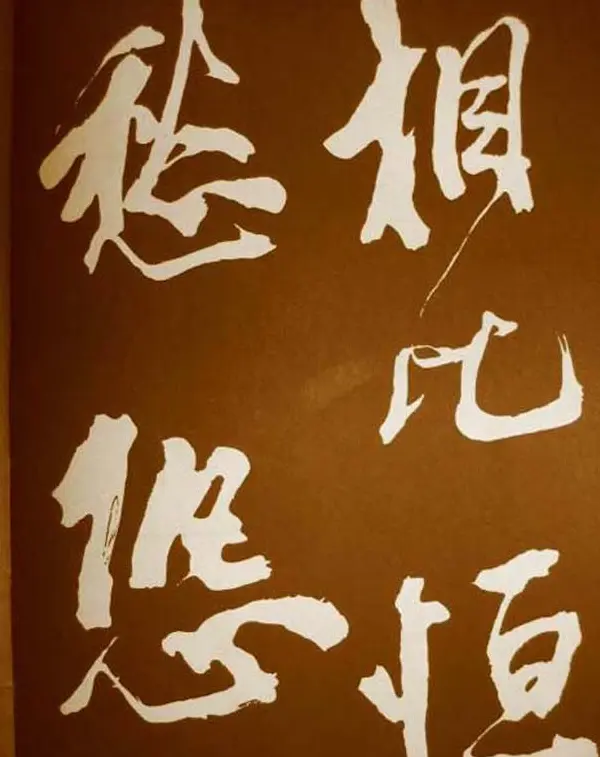 相比恒
愁